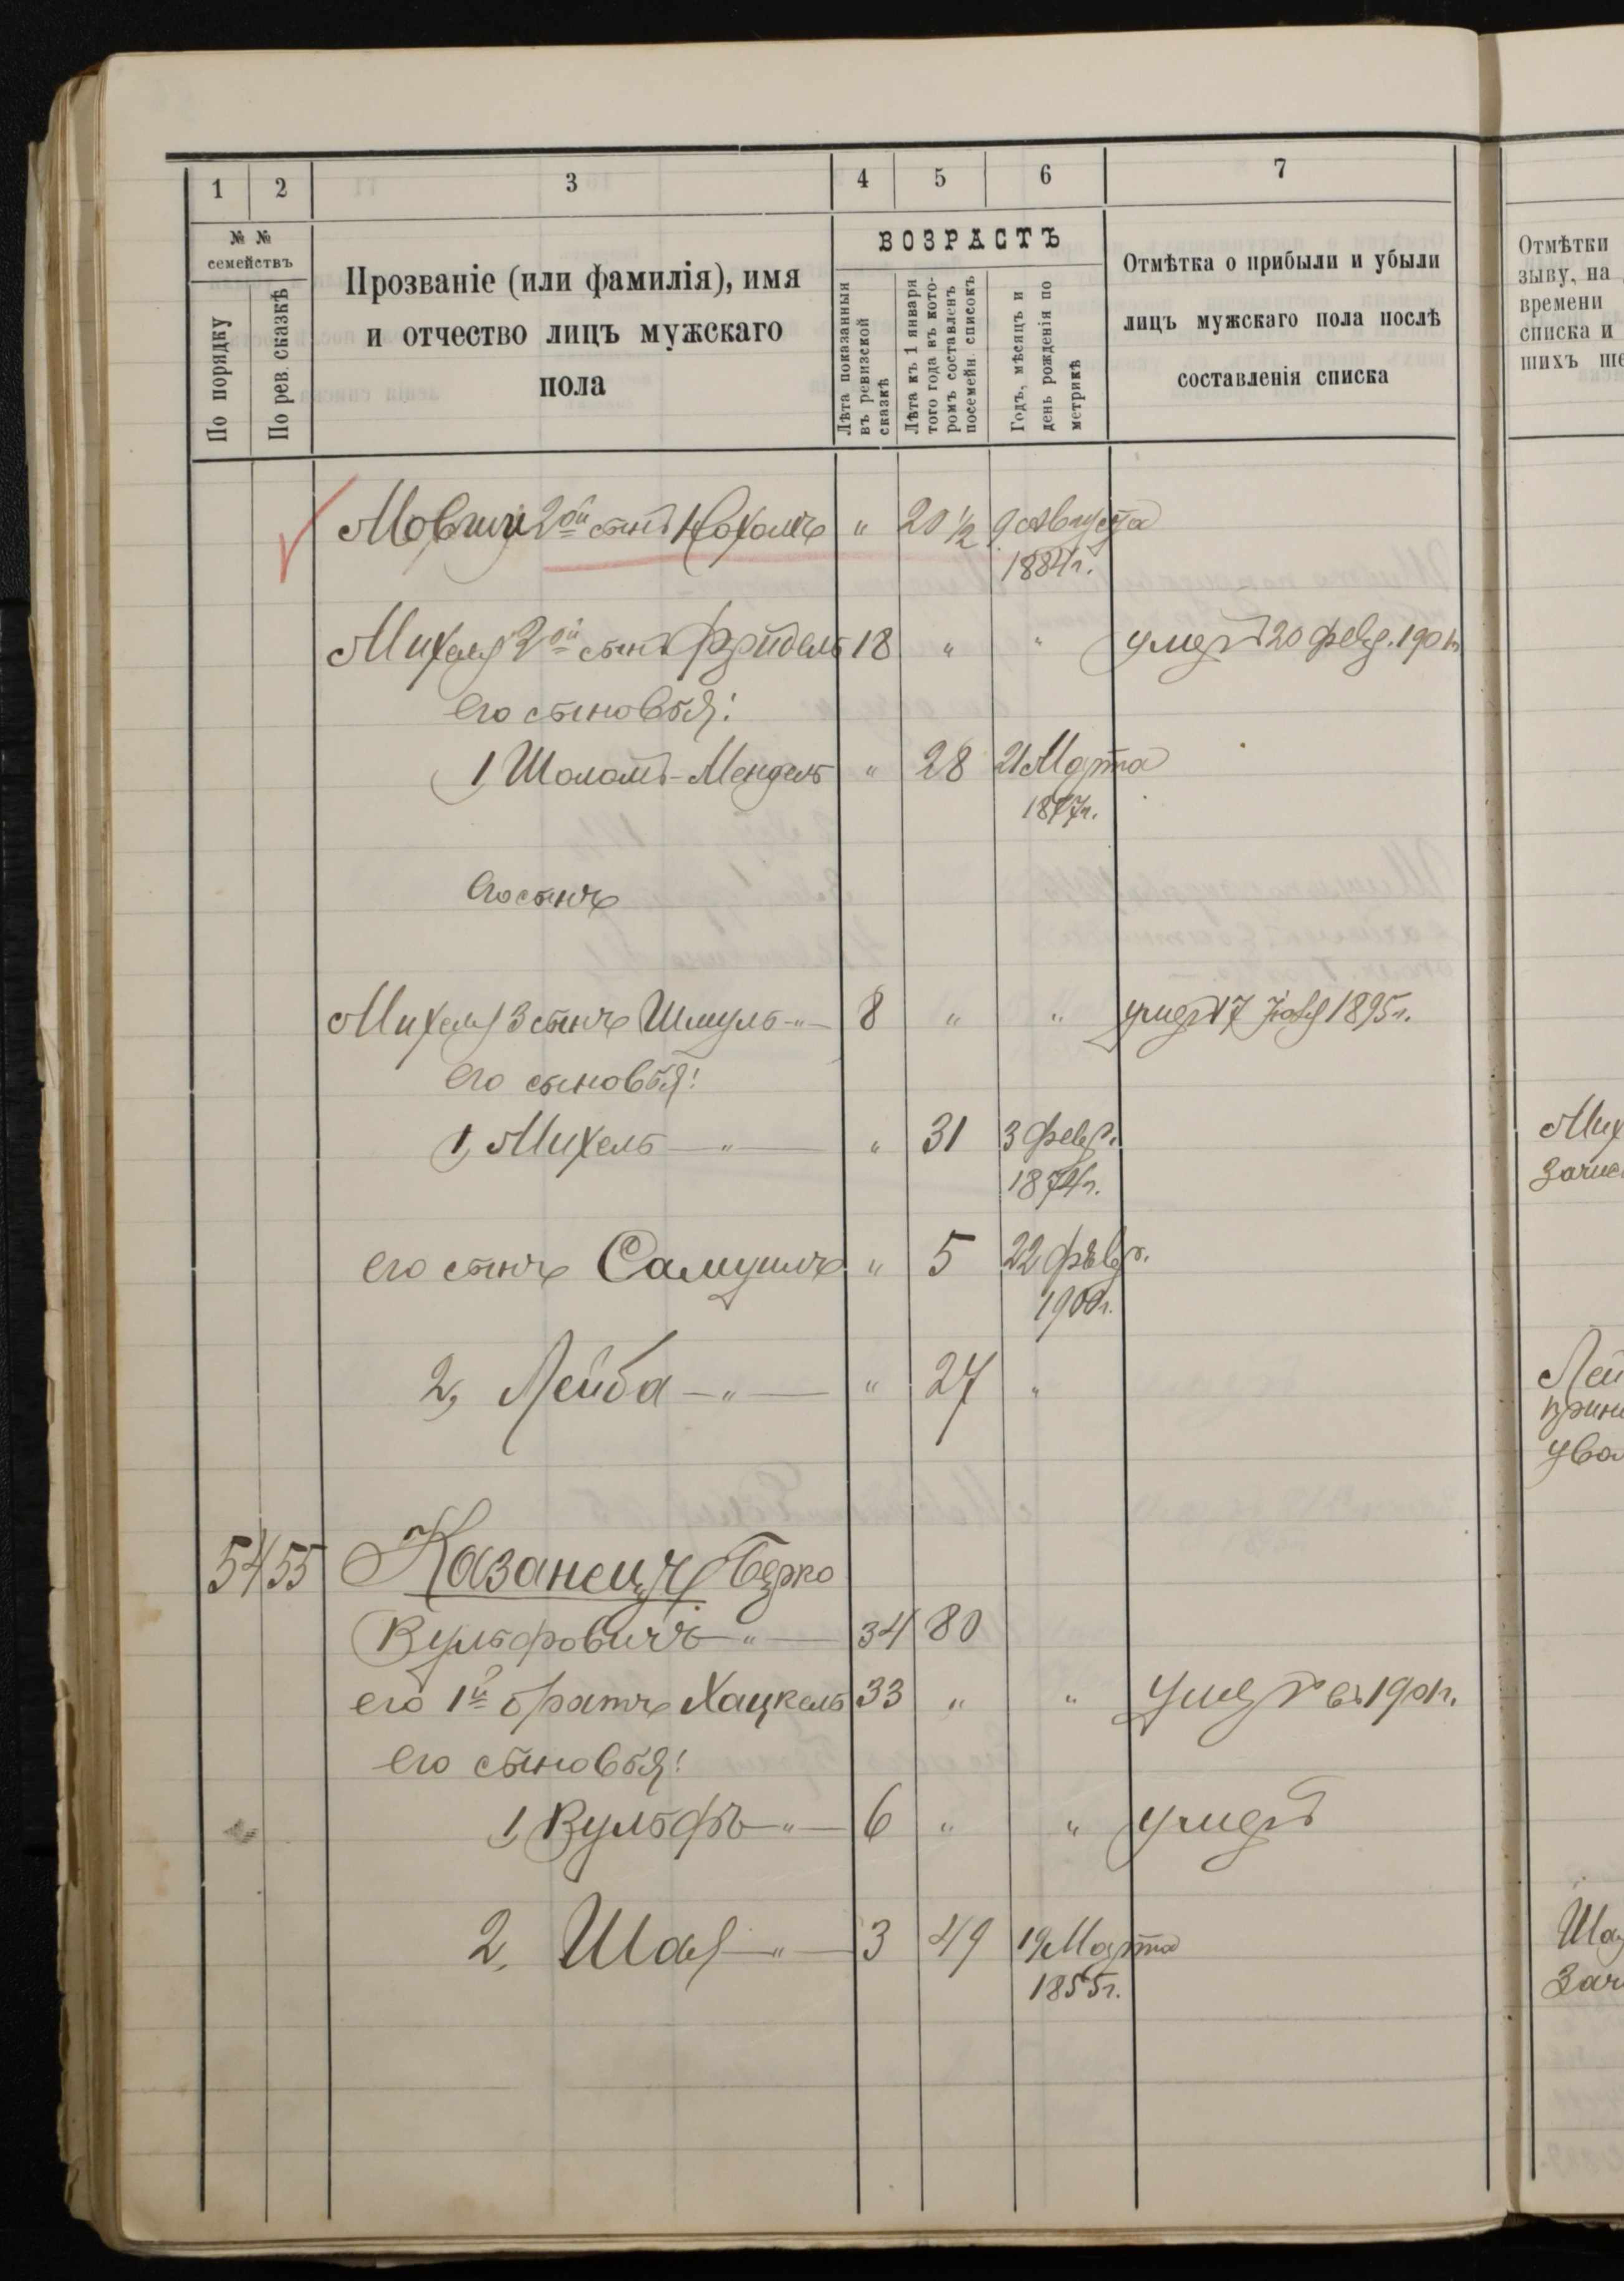 1 2 3 4 5 6 7
№ №
семействъ
По порядку
По рев. сказкѣ
Прозваніе (или фамилія), имя
и отчество лицъ мужскаго
пола
ВОЗРАСТЪ
Лѣта показанныя
въ ревизской
сказкѣ
Лѣта къ 1 января
того года въ кото-
ромъ составленъ
посемейн. списокъ
Годъ, мѣсяцъ и
день рожденія по
метрикѣ
Отмѣтка о прибыли и убыли
лицъ мужскаго пола послѣ
составленія списка
Отмѣтки
зыву, на
времени
списка и
шихъ ше
2ой сынъ Нохомъ " 20 1/2 9 августа
1884г.
Михеля 2ой сынъ Фридель 18 " " умеръ 20 февр. 190
его сыновья:
1, Шоломъ-Мендель " 28 21 Марта
1877г.
Его сынъ
Михеля 3 сынъ Шмуль -"- 8 " " умеръ 17 1895г.
его сыновья:
1, Михель -"- " 31 3 февр.
1874г.
Мих
зачис
его сынъ Самуилъ " 5 22 февр.
1900г.
2, Лейба -"- " 27 "
Лей
прин
ува
54 55 Казанецъ Берко
Вульфовичъ -"- 34 80
его 1й братъ Хацкель 33 " " Умеръ въ 1901г.
его сыновья:
1, Вульфъ -"- 6 " " умеръ
2, Шая -"- 3 49 19 Марта
1855г.
Шая
Зач